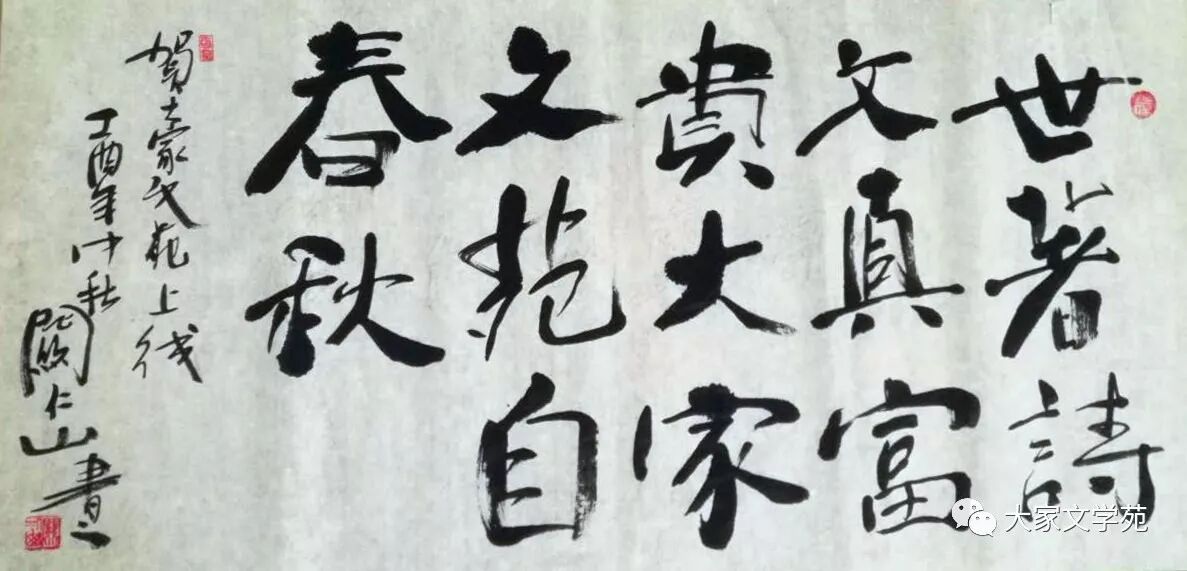 世著詩
文真富
貴大家
文苑自
春秋
賀大家文苑上线
丁酉年仲秋
關仁山書
大家文学苑